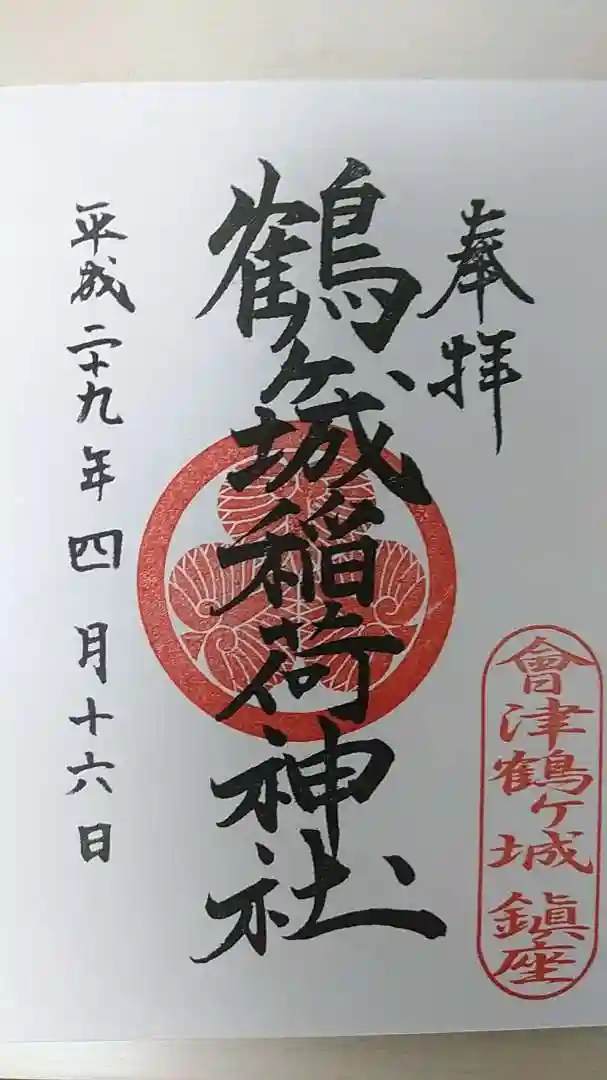 奉拝
會津鶴ヶ城鎮座
鶴ヶ城稲荷神社
平成二十九年四月十六日